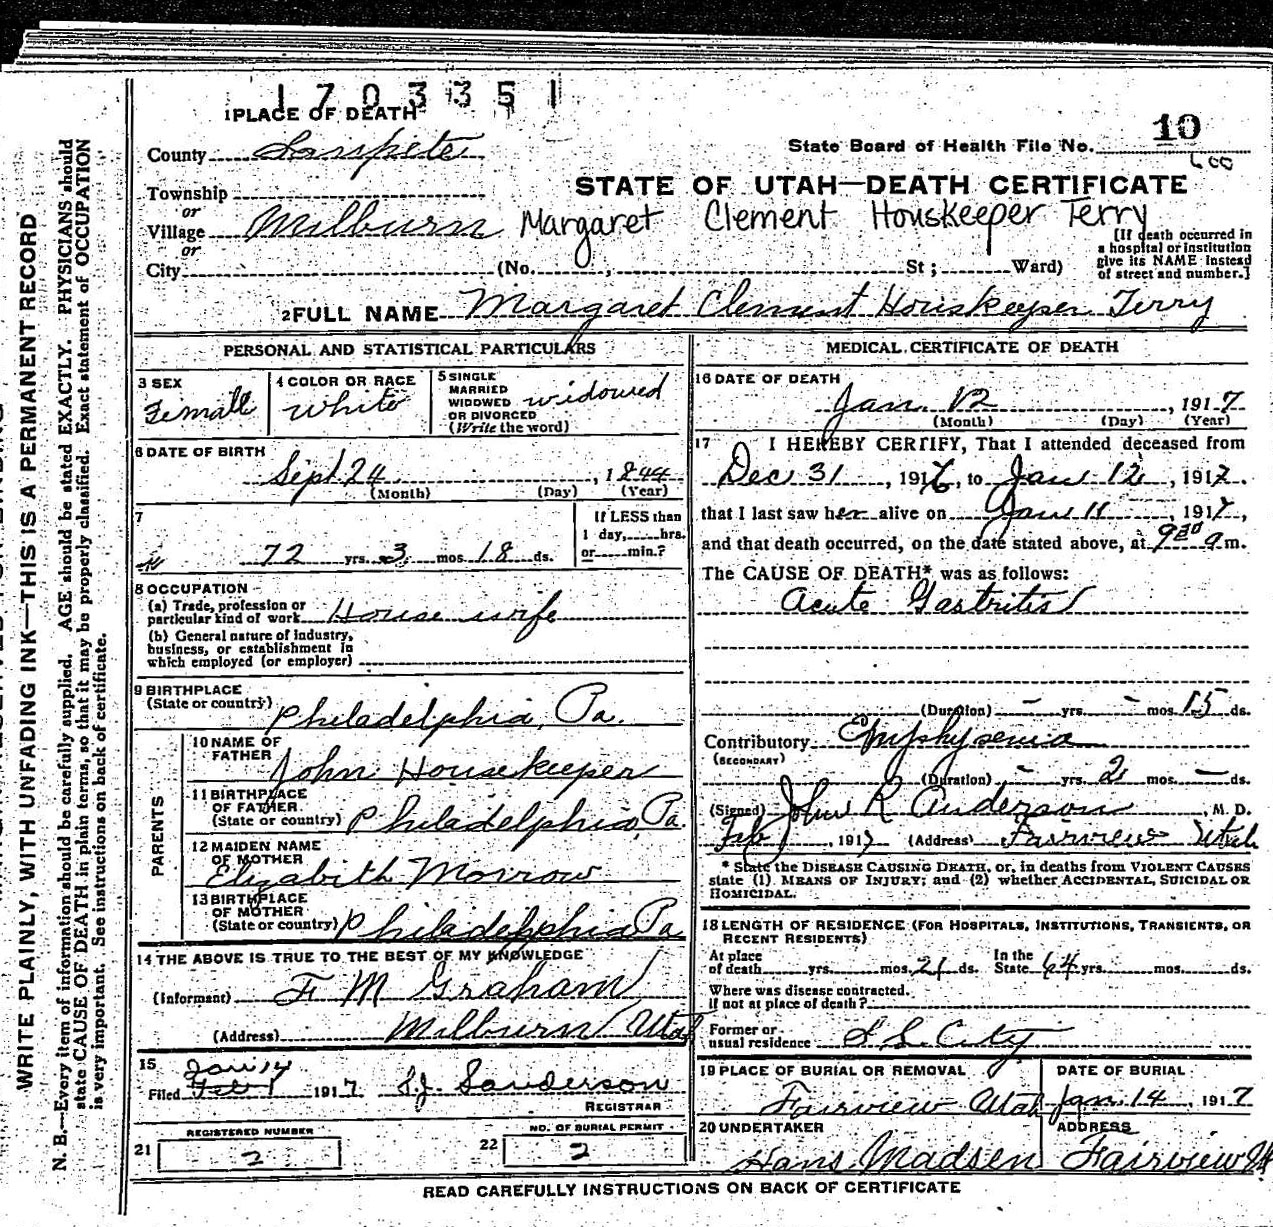 1703351
1 PLACE OF DEATH
County Sanpete
State Board of Health File No. 10
Township
or
STATE OF UTAH—DEATH CERTIFICATE
Village Milburn
Margaret Clement Houskeeper Terry
or
City (No. , St ; Ward)
[If death occurred in
a hospital or institution
give its NAME instead
of street and number.]
2 FULL NAME Margaret Clement Houskeeper Terry
PERSONAL AND STATISTICAL PARTICULARS
3 SEX
Female
4 COLOR OR RACE
White
5 SINGLE
MARRIED
WIDOWED
OR DIVORCED
(Write the word)
widowed
6 DATE OF BIRTH
Sept 24, 1844
(Month) (Day) (Year)
7
72 yrs. 3 mos. 18 ds.
If LESS than
1 day, hrs.
or min.?
8 OCCUPATION
(a) Trade, profession or
particular kind of work House wife
(b) General nature of industry,
business, or establishment in
which employed (or employer)
9 BIRTHPLACE
(State or country)
Philadelphia, Pa.
PARENTS
10 NAME OF
FATHER
John Housekeeper
11 BIRTHPLACE
OF FATHER
(State or country) Philadelphia, Pa.
12 MAIDEN NAME
OF MOTHER
Elizabith Morrow
13 BIRTHPLACE
OF MOTHER
(State or country) Philadelphia Pa
14 THE ABOVE IS TRUE TO THE BEST OF MY KNOWLEDGE
(Informant) F M Graham
(Address) Milburn Utah
15
Jan 14
Filed Feb 1 1917 S.J. Sanderson
REGISTRAR
REGISTERED NUMBER
21 2
NO. OF BURIAL PERMIT
22 2
MEDICAL CERTIFICATE OF DEATH
16 DATE OF DEATH
Jan 12, 1917
(Month) (Day) (Year)
17 I HEREBY CERTIFY, That I attended deceased from
Dec 31, 1916, to Jan 12, 1917.
that I last saw her alive on Jan 11, 1917,
and that death occurred, on the date stated above, at 9 30 a m.
The CAUSE OF DEATH* was as follows:
Acute Gastritis
(Duration) – yrs. – mos. 15 ds.
Contributory Emphysemia
(SECONDARY)
(Duration) – yrs. 2 mos. – ds.
(Signed) John R Anderson M. D.
Feb, 1917 (Address) Fairview Utah
* State the DISEASE CAUSING DEATH, or, in deaths from VIOLENT CAUSES
state (1) MEANS OF INJURY; and (2) whether ACCIDENTAL, SUICIDAL OR
HOMICIDAL.
18 LENGTH OF RESIDENCE (FOR HOSPITALS, INSTITUTIONS, TRANSIENTS, OR
RECENT RESIDENTS)
At place
of death yrs. mos. 21 ds.
In the
State 64 yrs. mos. ds.
Where was disease contracted.
If not at place of death?
Former or
usual residence S L City
19 PLACE OF BURIAL OR REMOVAL
Fairview Utah
DATE OF BURIAL
Jan. 14, 1917
20 UNDERTAKER
Hans Madsen
ADDRESS
Fairview Ut
READ CAREFULLY INSTRUCTIONS ON BACK OF CERTIFICATE
WRITE PLAINLY, WITH UNFADING INK—THIS IS A PERMANENT RECORD
N. B.—Every item of information should be carefully supplied. AGE should be stated EXACTLY. PHYSICIANS should
state CAUSE OF DEATH in plain terms, so that it may be properly classified. Exact statement of OCCUPATION
is very important. See instructions on back of certificate.